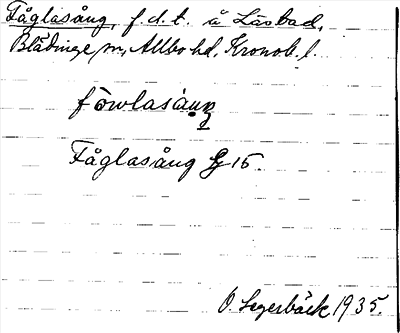 Fåglasång, f.d.t. å Läsbad,
Blädinge sn, Allbo hd, Kronob. l.
fówlasàŋ
Fåglasång G 15.
O. Segerbäck 1935.